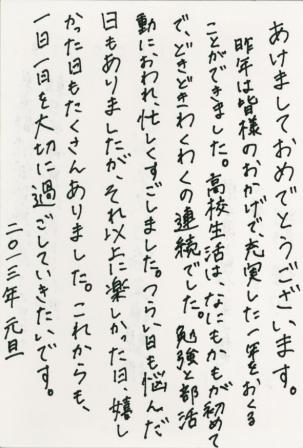 あけましておめでとうございます。
昨年は皆様のおかげで、充実した一年をおくる
ことができました。高校生活は、なにもかもが初めて
で、どきどきわくわくの連続でした。勉強と部活
動におわれ、忙しくすごしました。つらい日も悩んだ
日もありましたが、それ以上に楽しかった日、嬉し
かった日もたくさんありました。これからも、
一日一日を大切に過ごしていきたいです。
二〇一三年 元旦